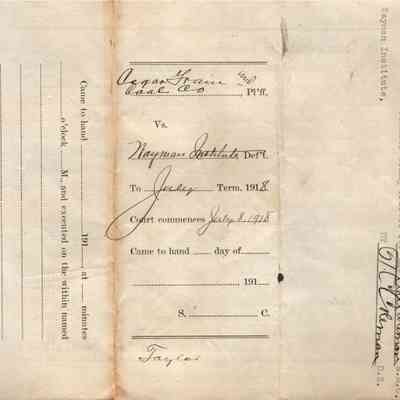 Grain and
Coal Co, Pl'ff.
Vs.
Wayman Institute Def't.
To July Term, 1918
Court commences July 8, 1918
Came to hand ___ day of
191
S. C.
Taylor
Came to hand 191 , at minutes
o'clock M., and executed on the within named
Wayman Institute,
BY
Coleman D.S.